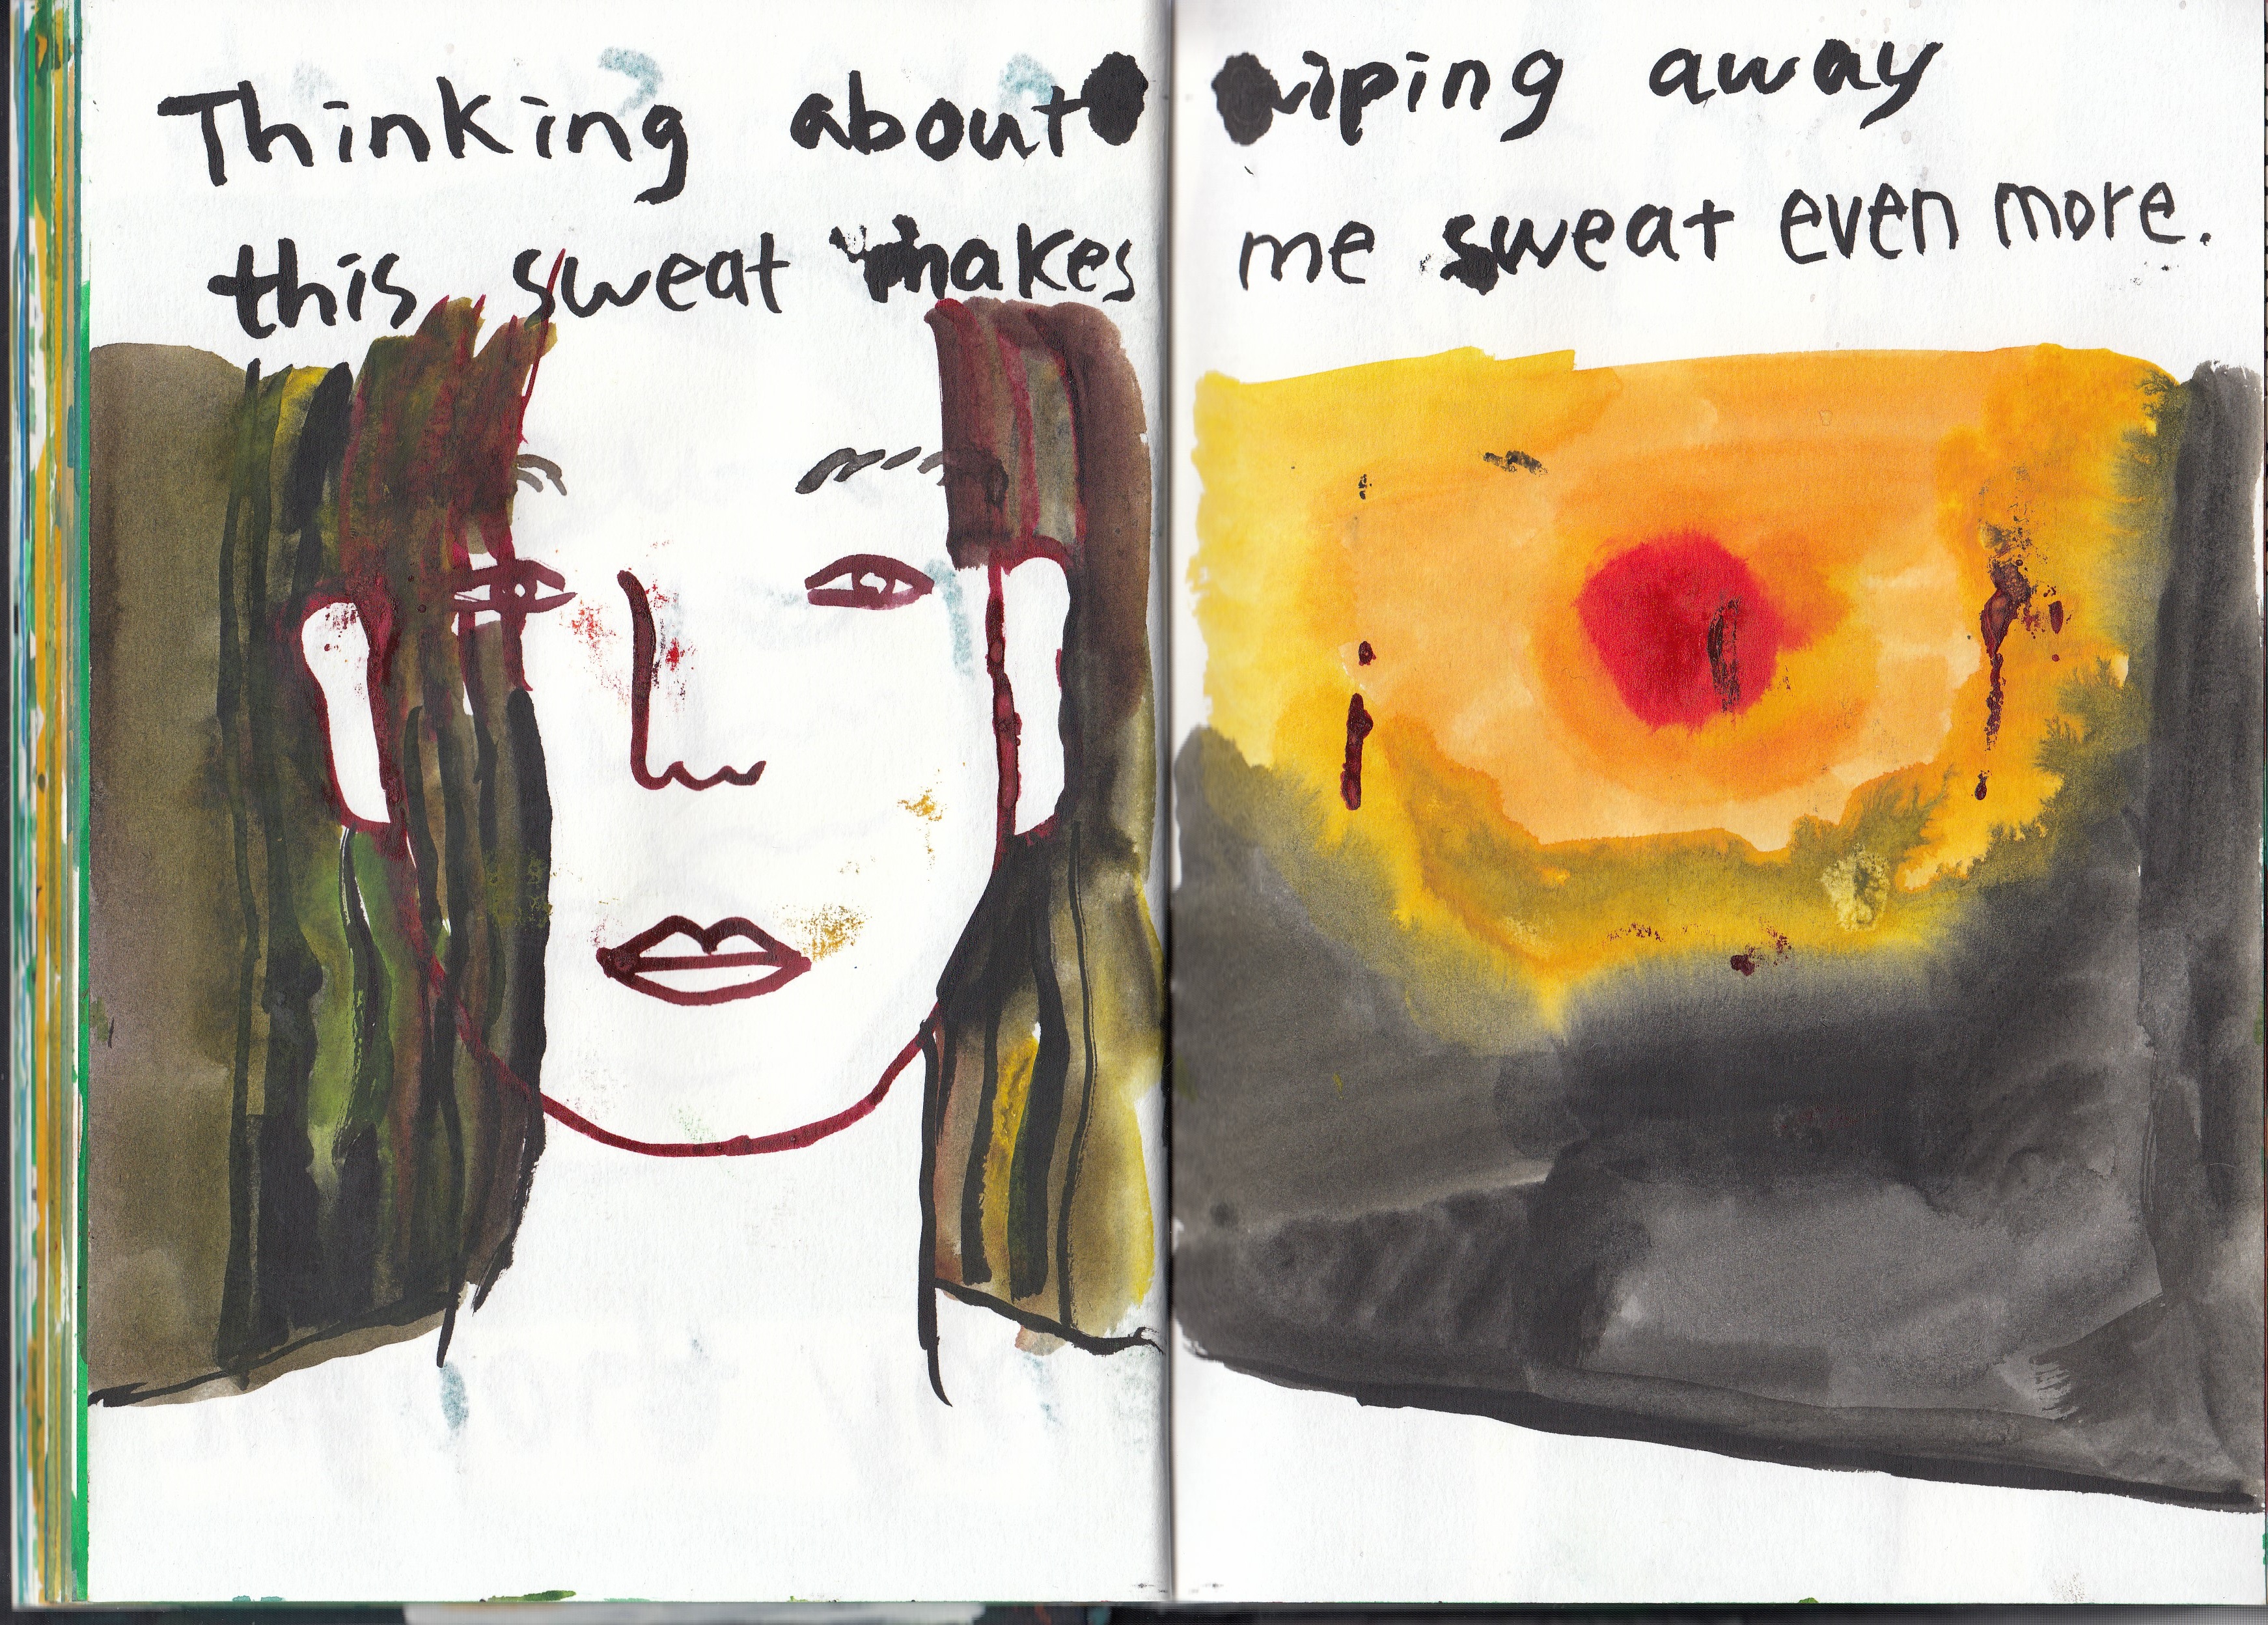 Thinking about wiping away
this sweat makes me sweat even more.